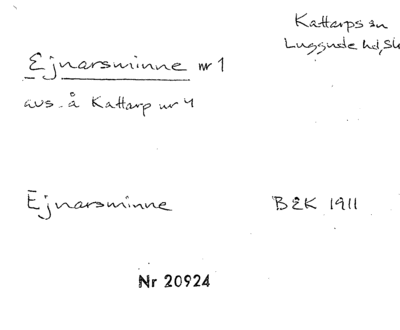 Kattarps sn
Luggude hd, Sk
Ejnarsminne nr 1
avs. å Kattarp nr 4
Ejnarsminne
BEK 1911
Nr 20924